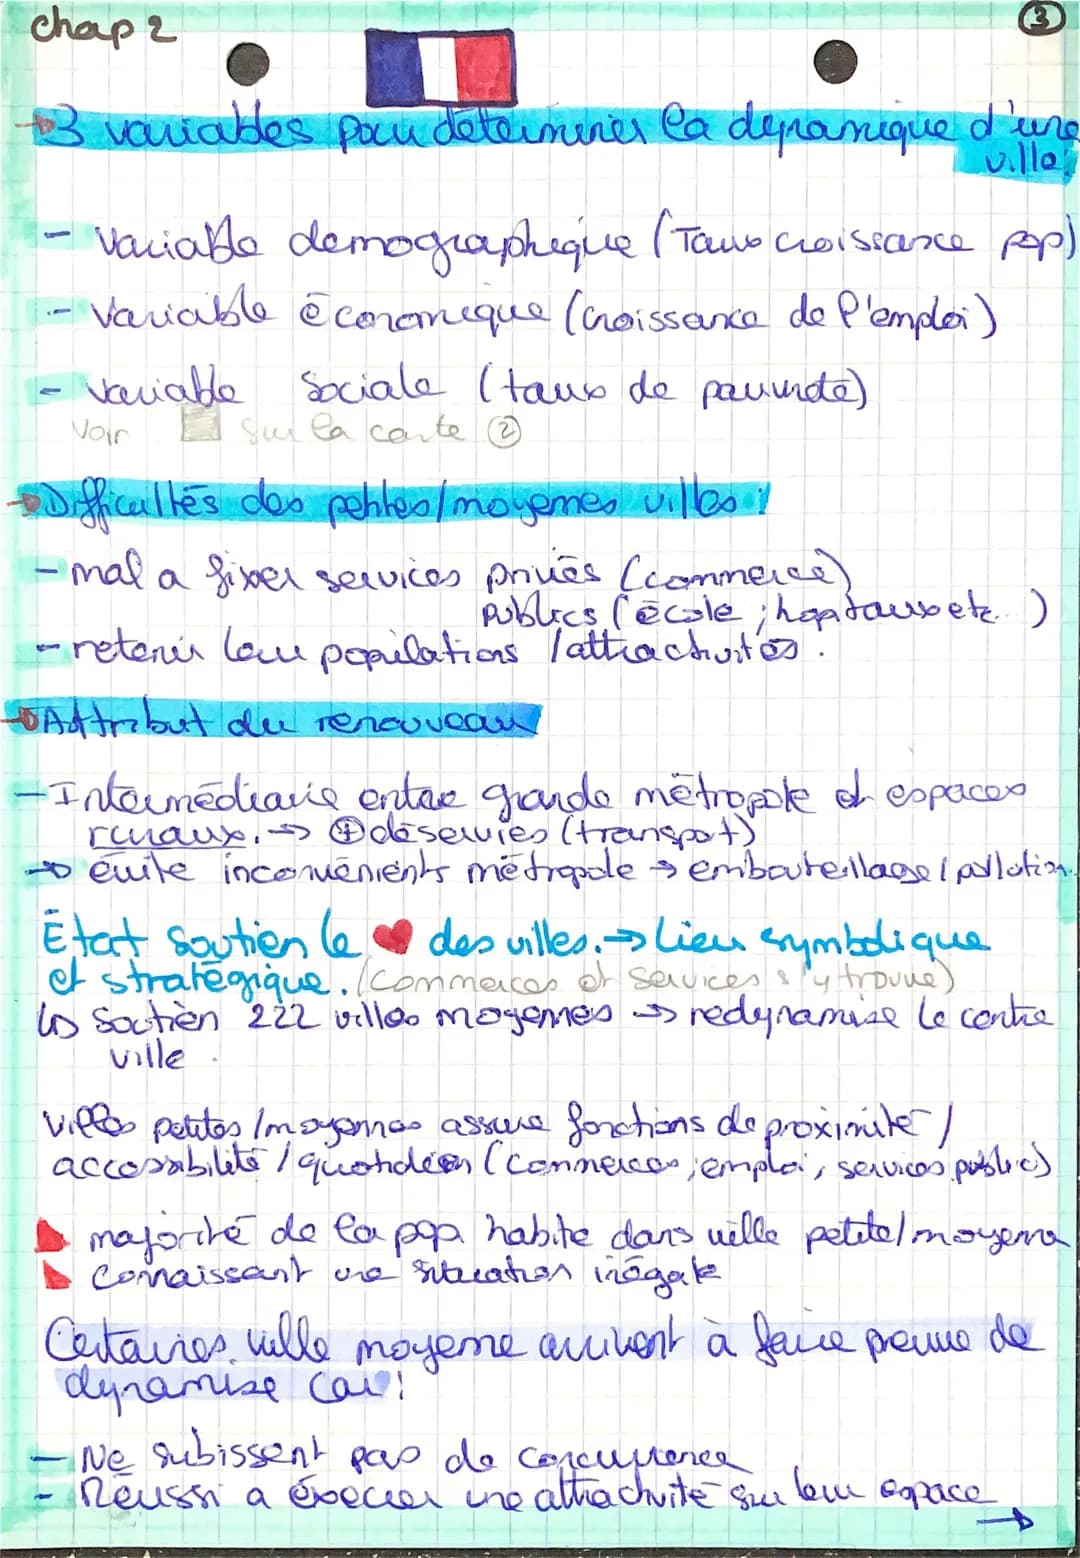 Chap 2
3
→3 variables pour déterminer la dynamique d'une
ville:
- Variable demographique (Taux croissance pop)
- Variable économique (croissance de l'emploi)
- variable sociale (taux de pauvreté)
Voir sur la carte 2
→Difficultés des petites/moyennes villes:
- mal a fixer services privés (commerce)
publics (école; hopitaux etc...)
- retenir leur populations /attractivités.
→Attribut du renouveau
- Intermédiaire entre grande métropole et espaces
ruraux. → + désservies (transport)
→ évite inconvénients métropole → embouteillage / pollution.
État soutien le ♥ des villes. → Lieu symbolique
et stratégique. (Commerces et services s'y trouve)
↳ Soutien 222 villes moyennes → redynamise le centre
ville.
Villes petites/moyennes assure fonctions de proximité /
accessibilité / quotidien (commerces; emploi, services publics)
majorité de la pop habite dans ville petite/moyenne
Connaissant une situation inégale
Certaines ville moyenne arrivent à faire preuve de
dynamise car:
- Ne subissent pas de concurrence
- Réussi a éxecier une attractivité sur leur espace
→